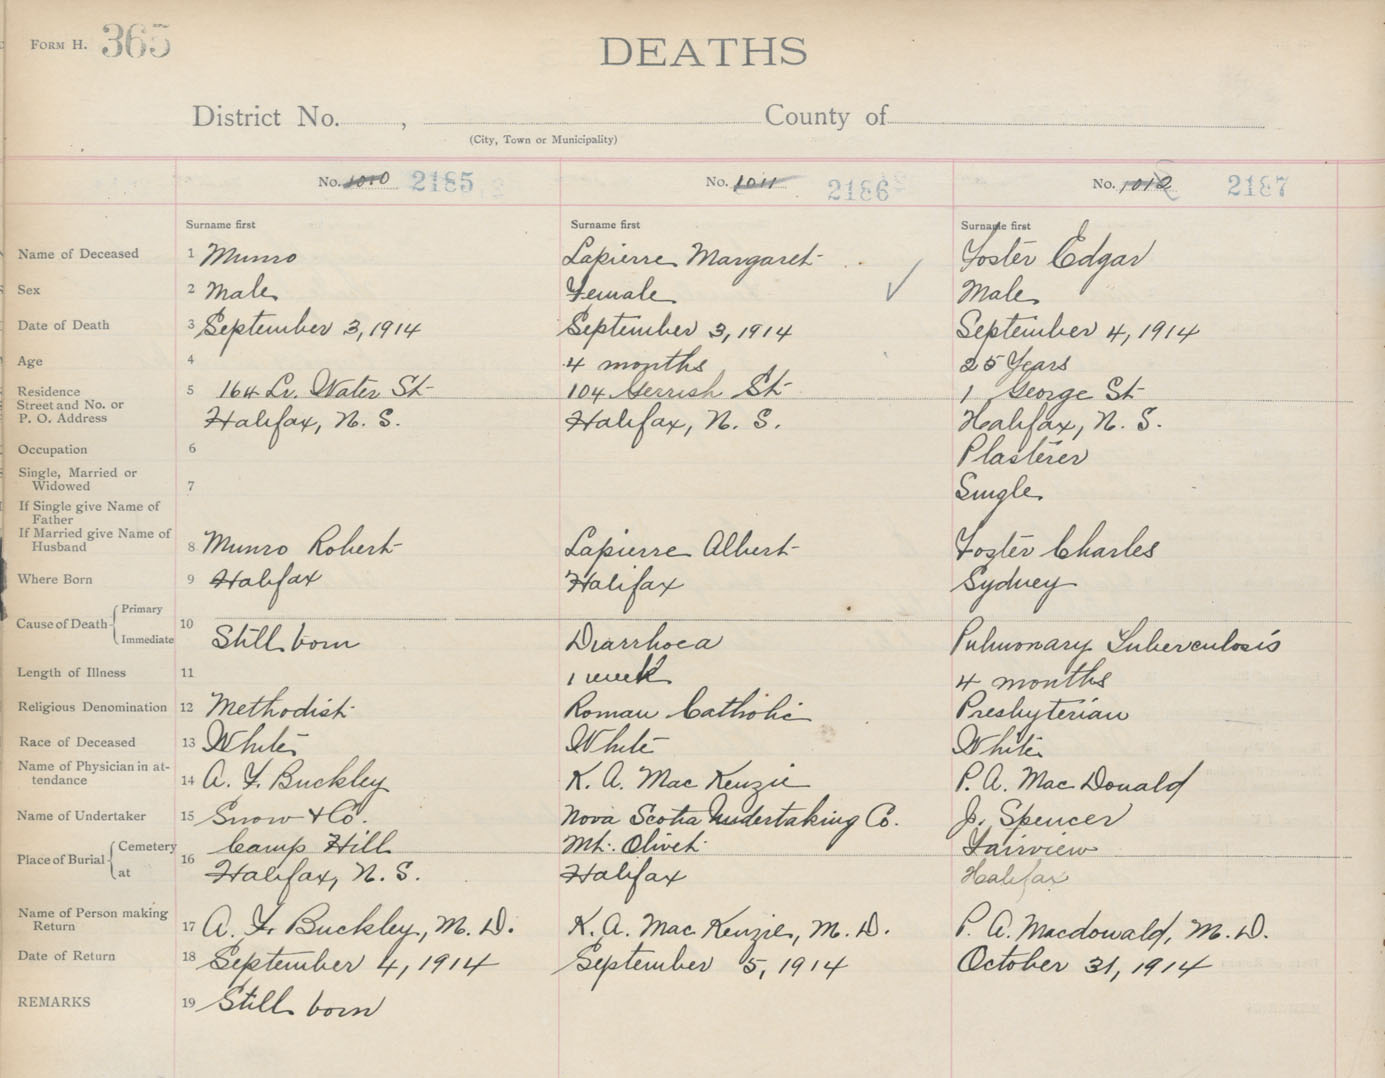 FORM H. 365
DEATHS
District No. , County of
(City, Town or Municipality)
No. 1010 2185 No. 1011 2186 No. 1012 2187
Surname first Surname first Surname first
Name of Deceased 1 Munro Lapierre Margaret Foster Edgar
Sex 2 Male Female Male
Date of Death 3 September 3, 1914 September 3, 1914 September 4, 1914
Age 4 4 months 25 Years
Residence 5 164 Lr. Water St 104 Gerrish St 1 George St
Street and No. or
P. O. Address Halifax, N. S. Halifax, N. S. Halifax, N. S.
Occupation 6 Plasterer
Single, Married or
Widowed 7 Single
If Single give Name of
Father
If Married give Name of
Husband 8 Munro Robert Lapierre Albert Foster Charles
Where Born 9 Halifax Halifax Sydney
Cause of Death Primary 10
Immediate Still born Diarrhoea Pulmonary Tuberculosis
Length of Illness 11 1 week 4 months
Religious Denomination 12 Methodist Roman Catholic Presbyterian
Race of Deceased 13 White White White
Name of Physician in at-
tendance 14 A. F. Buckley K. A. Mac Kenzie P. A. Mac Donald
Name of Undertaker 15 Snow & Co. Nova Scotia Undertaking Co. J. Spencer
Place of Burial Cemetery 16 Camp Hill Mt. Olivet Fairview
at Halifax, N. S. Halifax Halifax
Name of Person making
Return 17 A. F. Buckley, M. D. K. A. Mac Kenzie, M. D. P. A. Macdonald, M. D.
Date of Return 18 September 4, 1914 September 5, 1914 October 31, 1914
REMARKS 19 Still born